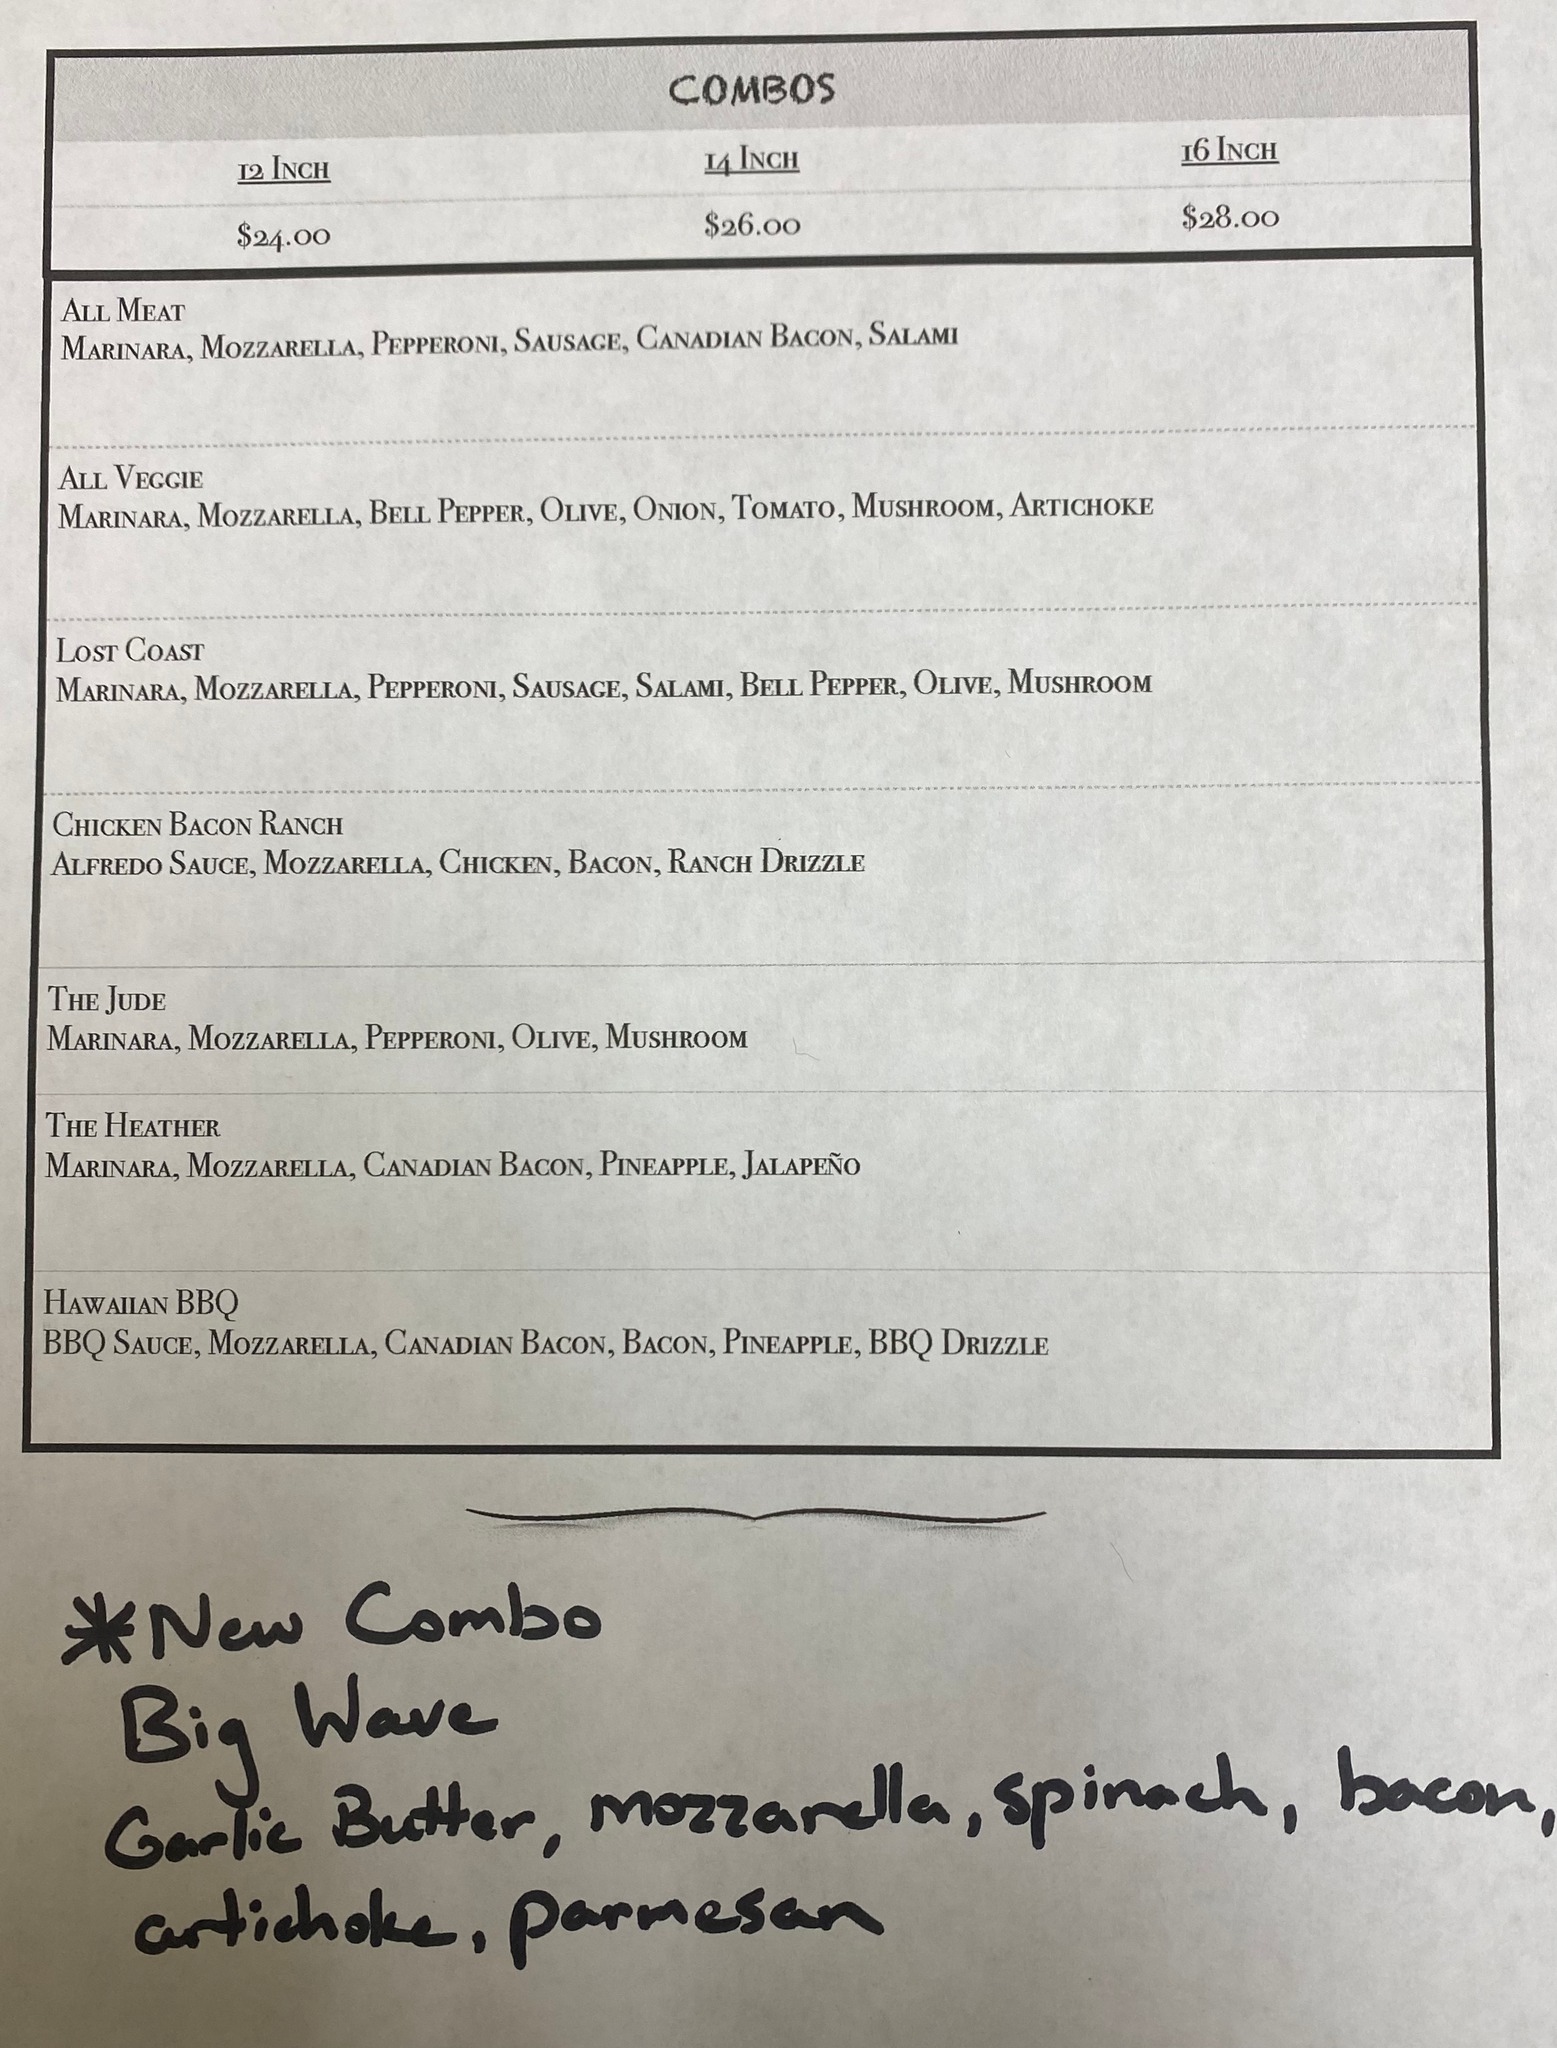 COMBOS
12 INCH 14 INCH 16 INCH
$24.00 $26.00 $28.00
ALL MEAT
MARINARA, MOZZARELLA, PEPPERONI, SAUSAGE, CANADIAN BACON, SALAMI
ALL VEGGIE
MARINARA, MOZZARELLA, BELL PEPPER, OLIVE, ONION, TOMATO, MUSHROOM, ARTICHOKE
LOST COAST
MARINARA, MOZZARELLA, PEPPERONI, SAUSAGE, SALAMI, BELL PEPPER, OLIVE, MUSHROOM
CHICKEN BACON RANCH
ALFREDO SAUCE, MOZZARELLA, CHICKEN, BACON, RANCH DRIZZLE
THE JUDE
MARINARA, MOZZARELLA, PEPPERONI, OLIVE, MUSHROOM
THE HEATHER
MARINARA, MOZZARELLA, CANADIAN BACON, PINEAPPLE, JALAPEÑO
HAWAIIAN BBQ
BBQ SAUCE, MOZZARELLA, CANADIAN BACON, BACON, PINEAPPLE, BBQ DRIZZLE
*New Combo
Big Wave
Garlic Butter, mozzarella, spinach, bacon,
artichoke, parmesan